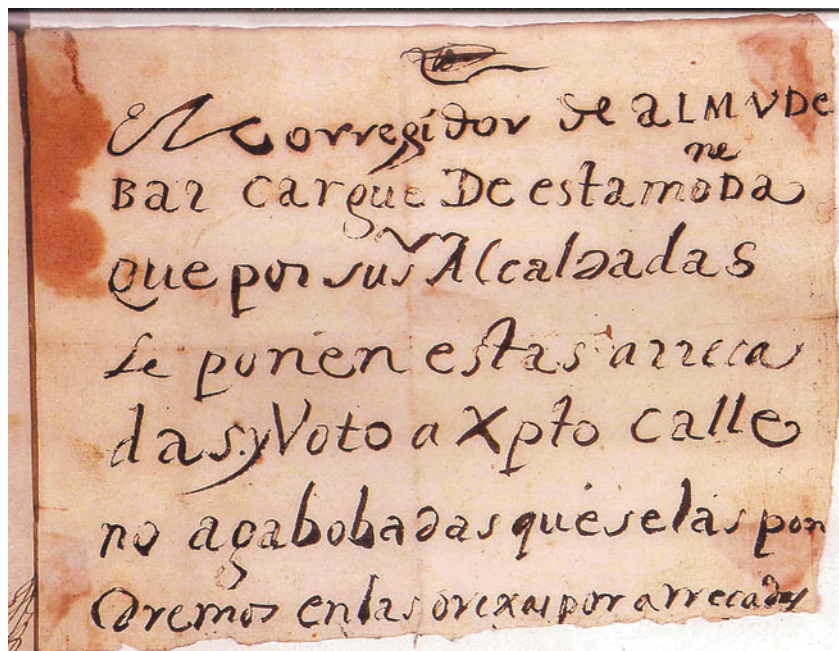 El Corregidor de aLMVDe
Baz cargue De esta moneDa
que por sus Alcaldadas
Le ponen estas arreca
das y Voto a Xpto calle
no aga bobadas que se las pon
dremos en las orexas por arrecadas